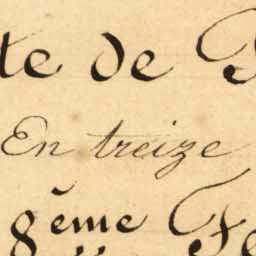 te de
En treize
8ème